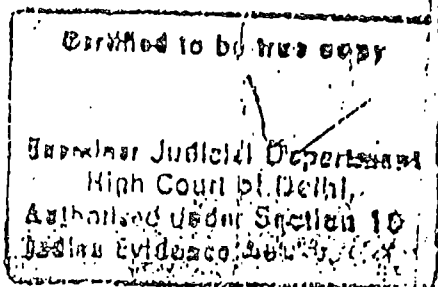 Certified to be true copy
Examiner Judicial Department
High Court of Delhi,
Authorised under Section
Indian Evidence